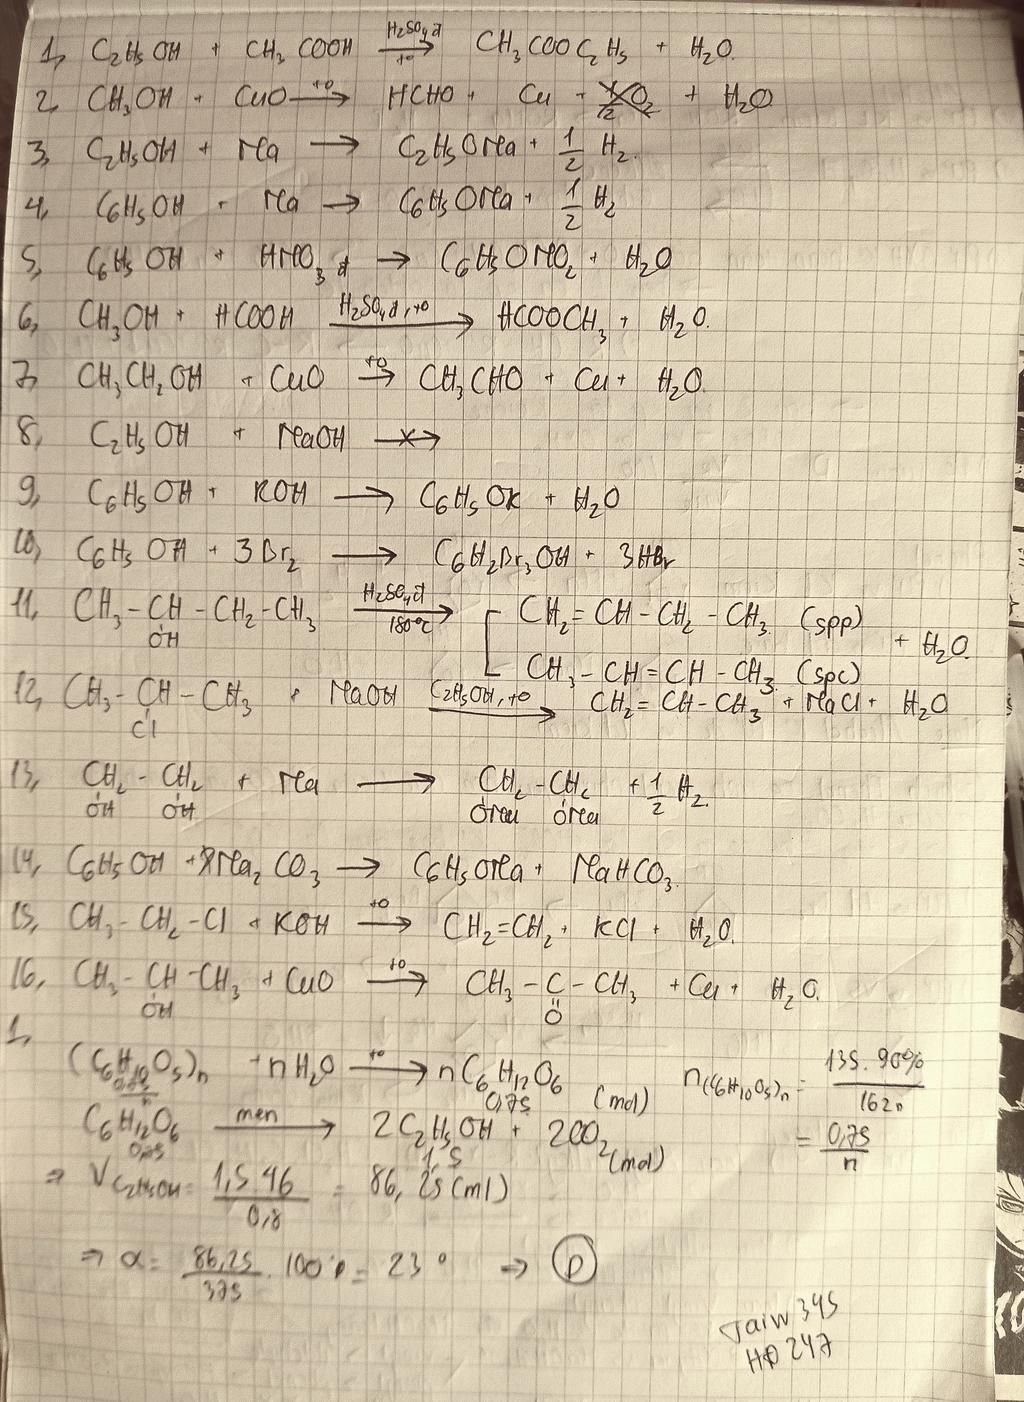 1, C2H5OH + CH3COOH H2SO4đ → t0 CH3COOC2H5 + H2O.
2, CH3OH + CuO t0 → HCHO + Cu + H2O
3, C2H5OH + Na → C2H5ONa + 1/2 H2.
4, C6H5OH + Na → C6H5ONa + 1/2 H2
5, C6H5OH + HNO3 đ → C6H5ONO2 + H2O
6, CH3OH + HCOOH H2SO4đ, t0 → HCOOCH3 + H2O.
7, CH3CH2OH + CuO t0 → CH3CHO + Cu + H2O.
8, C2H5OH + NaOH -x->
9, C6H5OH + KOH → C6H5OK + H2O
10, C6H5OH + 3Br2 → C6H2Br3OH + 3HBr
11, CH3-CH-CH2-CH3 H2SO4đ → 180°C CH2=CH-CH2-CH3 (spp) + H2O.
OH
CH3-CH=CH-CH3 (spc)
12, CH3-CH-CH3 + NaOH C2H5OH, t0 → CH2=CH-CH3 + NaCl + H2O
Cl
13, CH2-CH2 + Na → CH2-CH2 + 1/2 H2.
OH OH ONa ONa
14, C6H5OH + Na2CO3 → C6H5ONa + NaHCO3.
15, CH3-CH2-Cl + KOH t0 → CH2=CH2 + KCl + H2O.
16, CH3-CH-CH3 + CuO t0 → CH3-C-CH3 + Cu + H2O.
OH O
1,
(C6H10O5)n + nH2O t0 → nC6H12O6 n(C6H10O5)n = 135.90%/162n
0,75/n 0,75 (mol)
C6H12O6 men → 2C2H5OH + 2CO2 = 0,75/n
0,75 1,5 (mol)
⇒ VC2H5OH = 1,5.46/0,8 = 86,25 (ml)
⇒ α = 86,25/375 . 100% = 23° ⇒ D
Taiw 345
HĐ 247